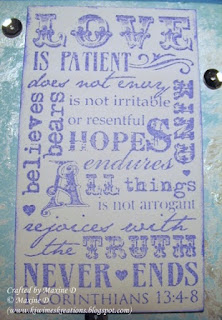 LOVE
IS PATIENT
does not envy
KIND
is not irritable
or resentful
believes
bears
HOPES
endures
All things
is not arrogant
rejoices with
the TRUTH
NEVER ENDS
CORINTHIANS 13:4-8
Crafted by Maxine D
© Maxine D
(www.kiwimeskreations.blogspot.com)